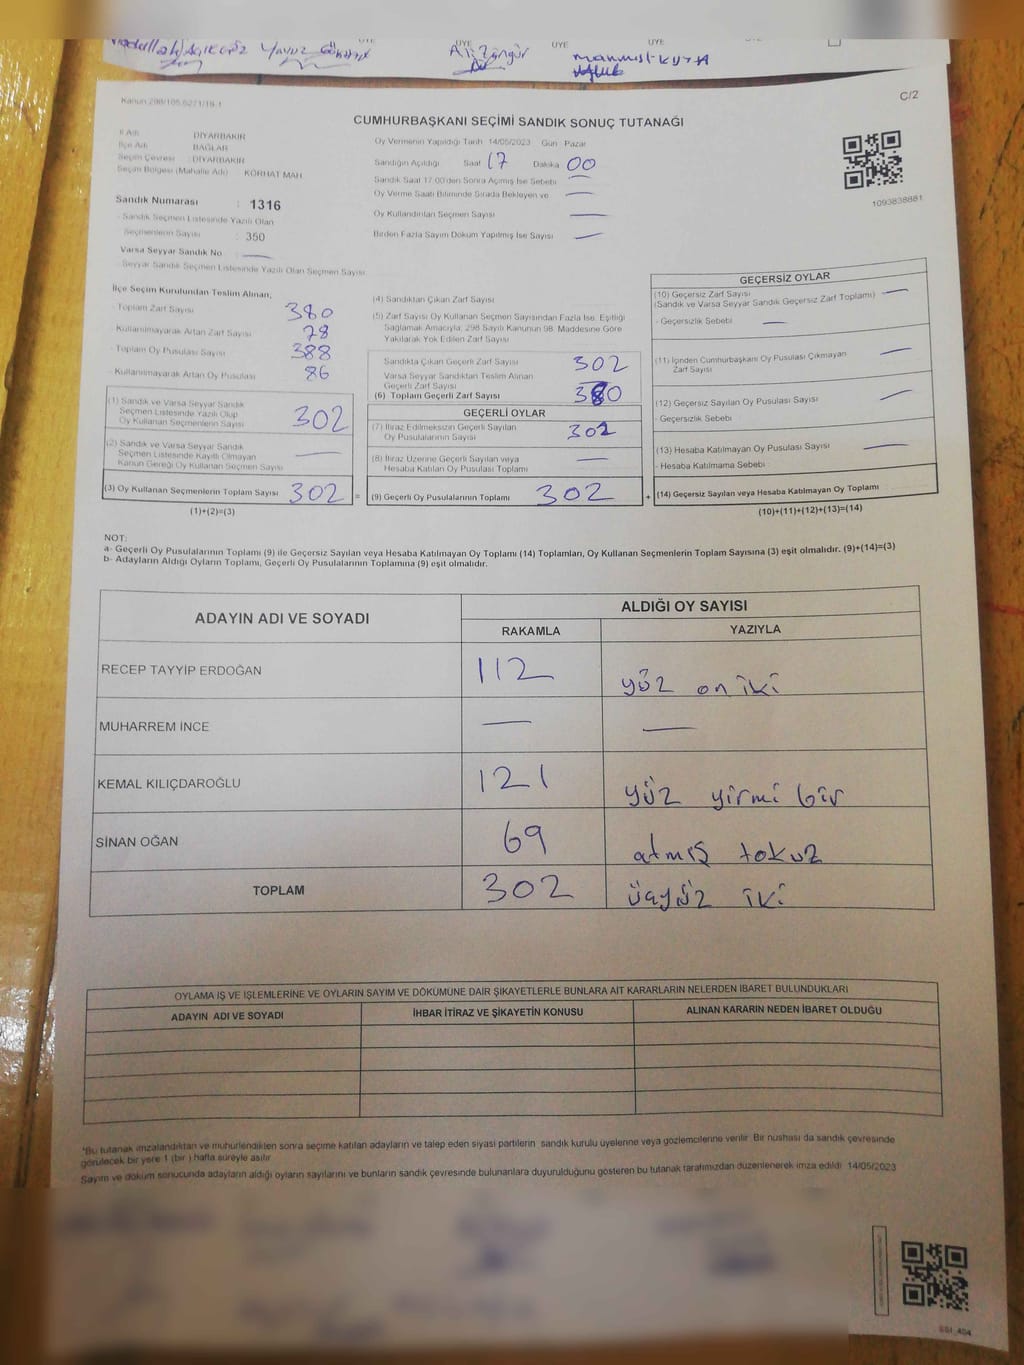 ÜYE
ÜYE
ÜYE
Yavuz
Kanun 298/105,62/1/18-1
C/2
CUMHURBAŞKANI SEÇİMİ SANDIK SONUÇ TUTANAĞI
İl Adı DİYARBAKIR
İlçe Adı BAĞLAR
Seçim Çevresi : DİYARBAKIR
Seçim Bölgesi (Mahalle Adı) KORHAT MAH.
Sandık Numarası : 1316
- Sandık Seçmen Listesinde Yazılı Olan
Seçmenlerin Sayısı : 350
Varsa Seyyar Sandık No : —
- Seyyar Sandık Seçmen Listesinde Yazılı Olan Seçmen Sayısı
Oy Vermenin Yapıldığı Tarih 14/05/2023 Gün Pazar
Sandığın Açıldığı Saat 17 Dakika 00
Sandık Saat 17.00'den Sonra Açılmış İse Sebebi —
Oy Verme Saati Bitiminde Sırada Bekleyen ve —
Oy Kullandırılan Seçmen Sayısı —
Birden Fazla Sayım Döküm Yapılmış İse Sayısı —
1093838881
İlçe Seçim Kurulundan Teslim Alınan;
- Toplam Zarf Sayısı 380
- Kullanılmayarak Artan Zarf Sayısı 78
- Toplam Oy Pusulası Sayısı 388
- Kullanılmayarak Artan Oy Pusulası 86
(1) Sandık ve Varsa Seyyar Sandık
Seçmen Listesinde Yazılı Olup
Oy Kullanan Seçmenlerin Sayısı 302
(2) Sandık ve Varsa Seyyar Sandık
Seçmen Listesinde Kayıtlı Olmayan
Kanun Gereği Oy Kullanan Seçmen Sayısı —
(3) Oy Kullanan Seçmenlerin Toplam Sayısı 302 =
(1)+(2)=(3)
(4) Sandıktan Çıkan Zarf Sayısı
(5) Zarf Sayısı Oy Kullanan Seçmen Sayısından Fazla İse, Eşitliği
Sağlamak Amacıyla, 298 Sayılı Kanunun 98. Maddesine Göre
Yakılarak Yok Edilen Zarf Sayısı
Sandıkta Çıkan Geçerli Zarf Sayısı 302
Varsa Seyyar Sandıktan Teslim Alınan
Geçerli Zarf Sayısı
(6) Toplam Geçerli Zarf Sayısı
GEÇERLİ OYLAR
(7) İtiraz Edilmeksizin Geçerli Sayılan
Oy Pusulalarının Sayısı 302
(8) İtiraz Üzerine Geçerli Sayılan veya
Hesaba Katılan Oy Pusulası Toplamı —
(9) Geçerli Oy Pusulalarının Toplamı 302 +
GEÇERSİZ OYLAR
(10) Geçersiz Zarf Sayısı
(Sandık ve Varsa Seyyar Sandık Geçersiz Zarf Toplamı) —
- Geçersizlik Sebebi —
(11) İçinden Cumhurbaşkanı Oy Pusulası Çıkmayan
Zarf Sayısı —
(12) Geçersiz Sayılan Oy Pusulası Sayısı —
- Geçersizlik Sebebi
(13) Hesaba Katılmayan Oy Pusulası Sayısı —
- Hesaba Katılmama Sebebi
(14) Geçersiz Sayılan veya Hesaba Katılmayan Oy Toplamı
(10)+(11)+(12)+(13)=(14)
NOT:
a- Geçerli Oy Pusulalarının Toplamı (9) ile Geçersiz Sayılan veya Hesaba Katılmayan Oy Toplamı (14) Toplamları, Oy Kullanan Seçmenlerin Toplam Sayısına (3) eşit olmalıdır. (9)+(14)=(3)
b- Adayların Aldığı Oyların Toplamı, Geçerli Oy Pusulalarının Toplamına (9) eşit olmalıdır.
ADAYIN ADI VE SOYADI ALDIĞI OY SAYISI
RAKAMLA YAZIYLA
RECEP TAYYİP ERDOĞAN 112 yüz on iki
MUHARREM İNCE — —
KEMAL KILIÇDAROĞLU 121 yüz yirmi bir
SİNAN OĞAN 69 atmış tokuz
TOPLAM 302 üçyüz iki
OYLAMA İŞ VE İŞLEMLERİNE VE OYLARIN SAYIM VE DÖKÜMÜNE DAİR ŞİKAYETLERLE BUNLARA AİT KARARLARIN NELERDEN İBARET BULUNDUKLARI
ADAYIN ADI VE SOYADI İHBAR İTİRAZ VE ŞİKAYETİN KONUSU ALINAN KARARIN NEDEN İBARET OLDUĞU
*Bu tutanak imzalandıktan ve mühürlendikten sonra seçime katılan adayların ve talep eden siyasi partilerin sandık kurulu üyelerine veya gözlemcilerine verilir. Bir nüshası da sandık çevresinde
görülecek bir yere 1 (bir ) hafta süreyle asılır.
Sayım ve döküm sonucunda adayların aldığı oyların sayılarını ve bunların sandık çevresinde bulunanlara duyurulduğunu gösteren bu tutanak tarafımızdan düzenlenerek imza edildi. 14/05/2023